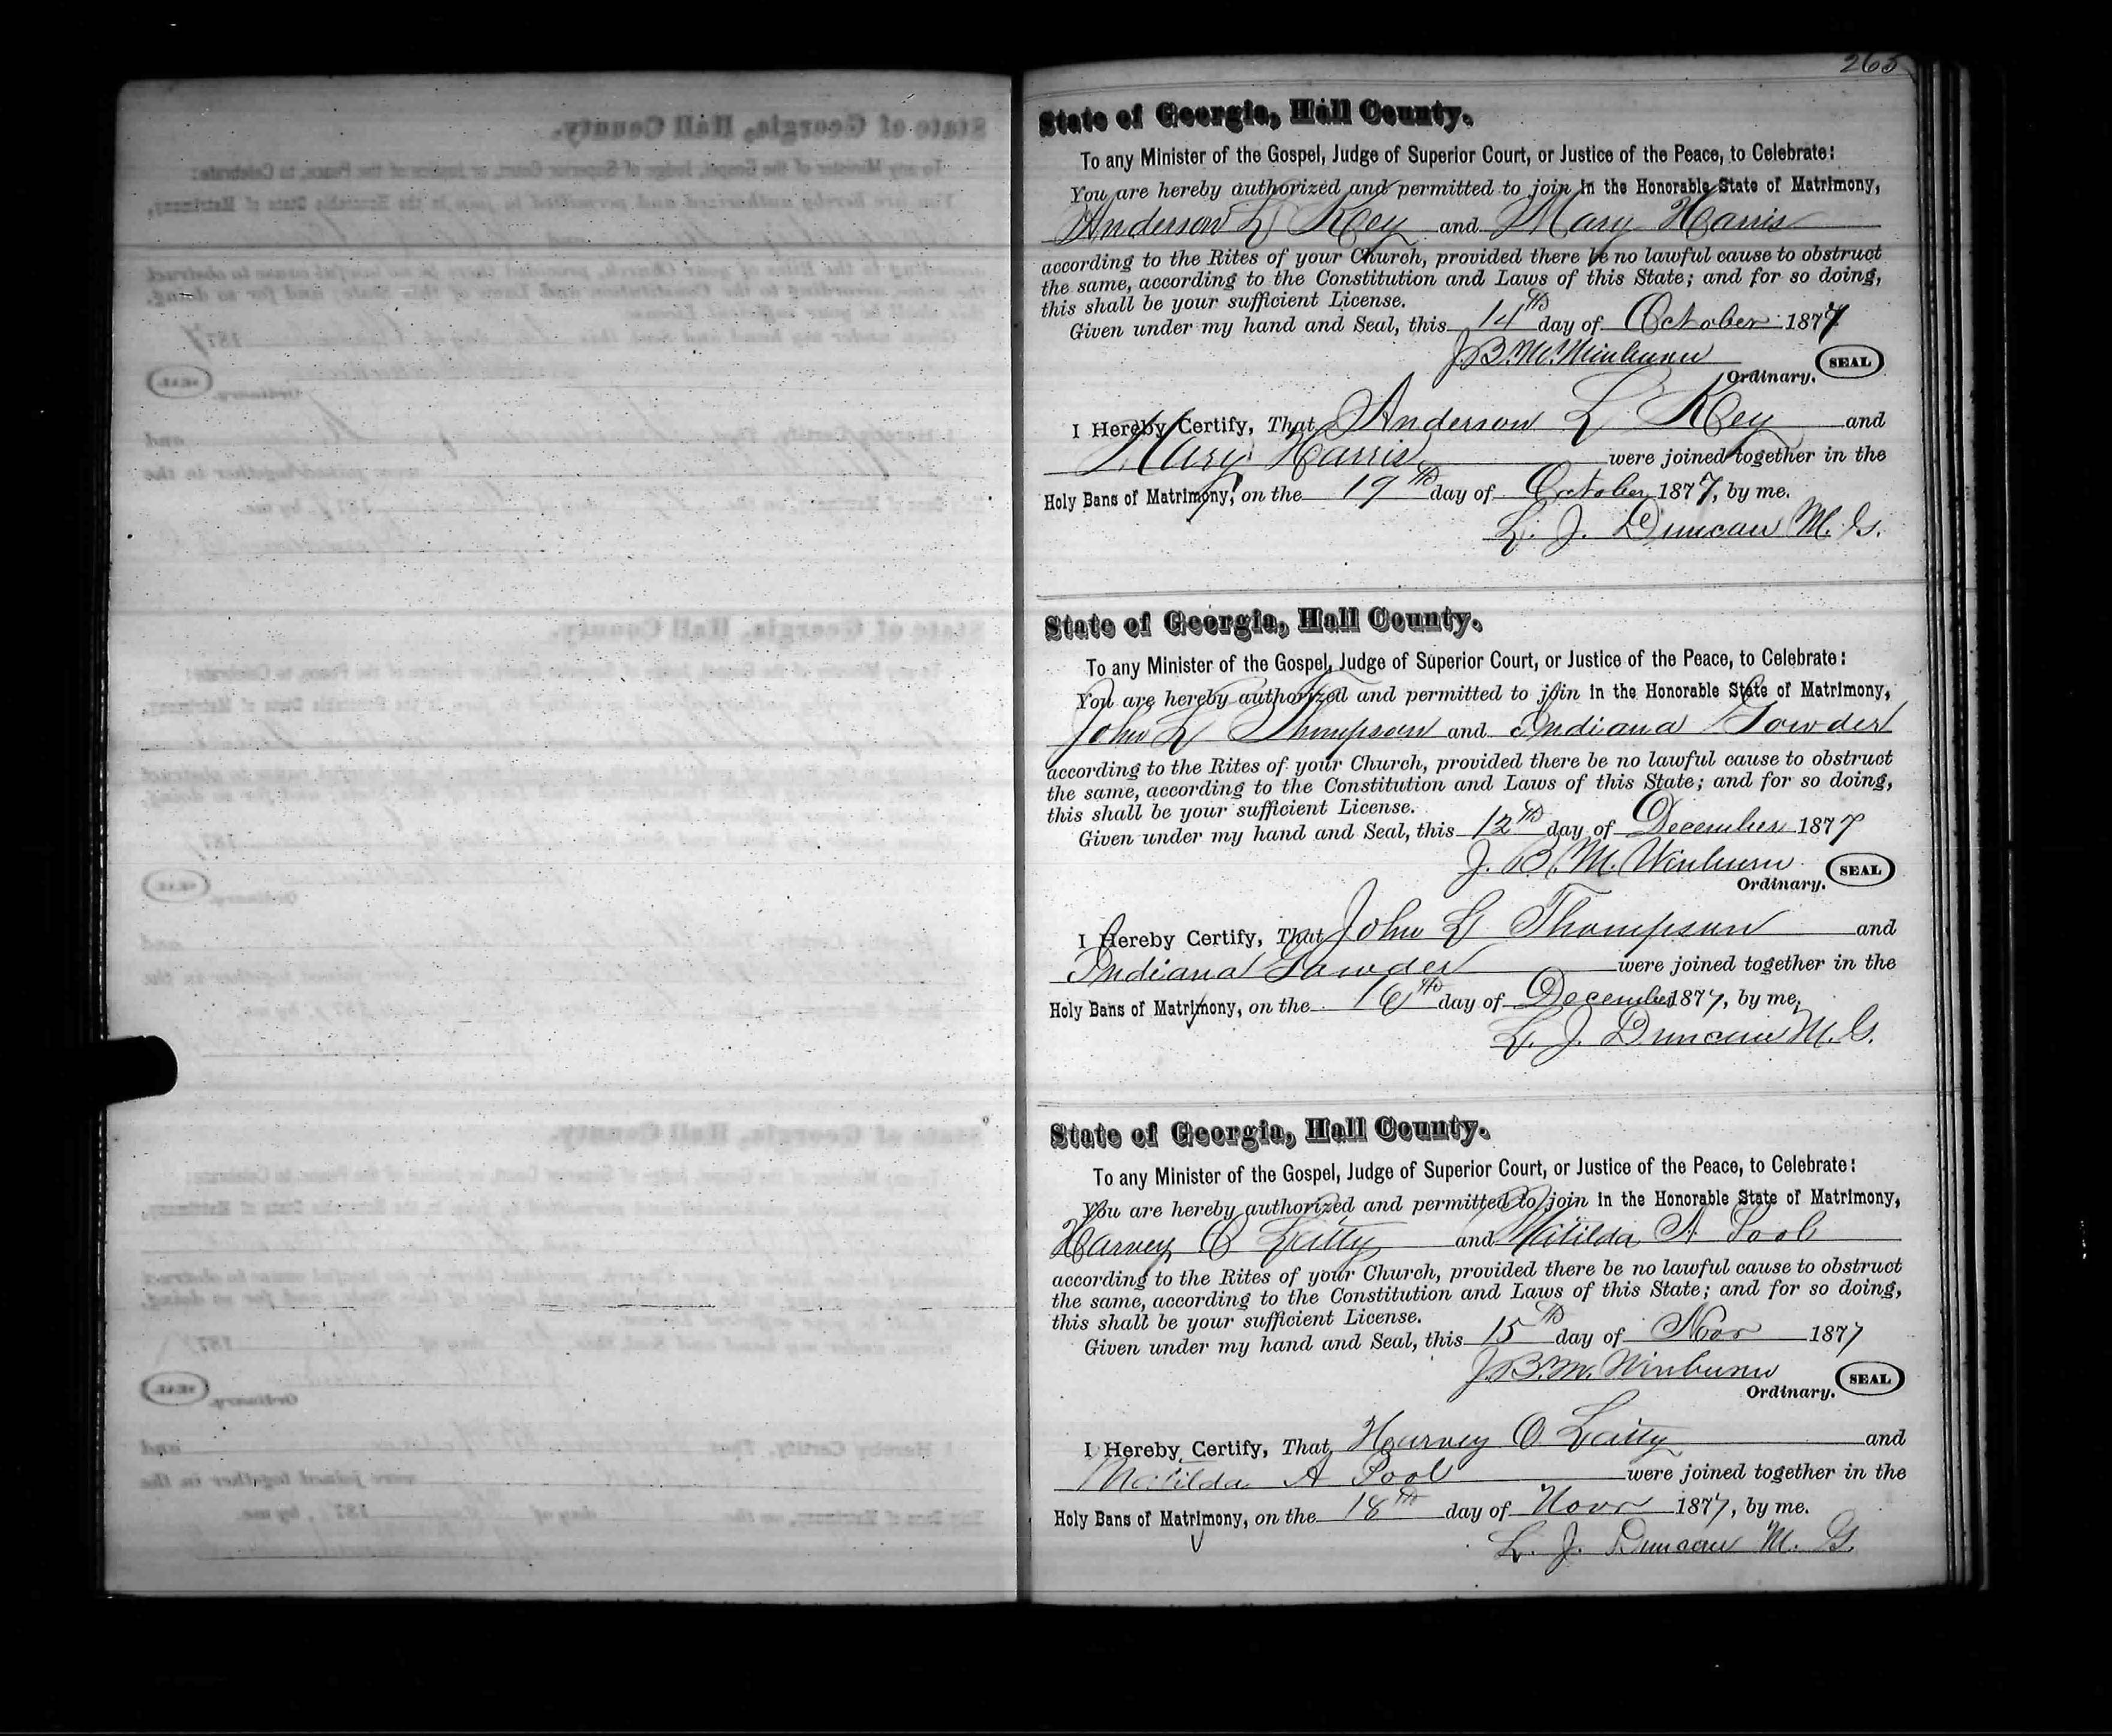 265
State of Georgia, Hall County.
To any Minister of the Gospel, Judge of Superior Court, or Justice of the Peace, to Celebrate:
You are hereby authorized and permitted to join in the Honorable State of Matrimony,
Anderson L Key and Mary Harris
according to the Rites of your Church, provided there be no lawful cause to obstruct
the same, according to the Constitution and Laws of this State; and for so doing,
this shall be your sufficient License.
Given under my hand and Seal, this 14th day of October 1877
J. B. M. Winburn SEAL
Ordinary.
I Hereby Certify, That Anderson L Key and
Mary Harris were joined together in the
Holy Bans of Matrimony, on the 19th day of October 1877, by me.
L. J. Duncan M. G.
State of Georgia, Hall County.
To any Minister of the Gospel, Judge of Superior Court, or Justice of the Peace, to Celebrate:
You are hereby authorized and permitted to join in the Honorable State of Matrimony,
John L Thompson and Indiana Gowder
according to the Rites of your Church, provided there be no lawful cause to obstruct
the same, according to the Constitution and Laws of this State; and for so doing,
this shall be your sufficient License.
Given under my hand and Seal, this 12th day of December 1877
J. B. M. Winburn SEAL
Ordinary.
I Hereby Certify, That John L Thompson and
Indiana Gowder were joined together in the
Holy Bans of Matrimony, on the 16th day of December 1877, by me,
L. J. Duncan M. G.
State of Georgia, Hall County.
To any Minister of the Gospel, Judge of Superior Court, or Justice of the Peace, to Celebrate:
You are hereby authorized and permitted to join in the Honorable State of Matrimony,
Harvey O Latty and Matilda A Pool
according to the Rites of your Church, provided there be no lawful cause to obstruct
the same, according to the Constitution and Laws of this State; and for so doing,
this shall be your sufficient License.
Given under my hand and Seal, this 15th day of Novr 1877
J. B. M. Winburn SEAL
Ordinary.
I Hereby Certify, That Harvey O Latty and
Matilda A Pool were joined together in the
Holy Bans of Matrimony, on the 18th day of Novr 1877, by me.
L. J. Duncan M. G.